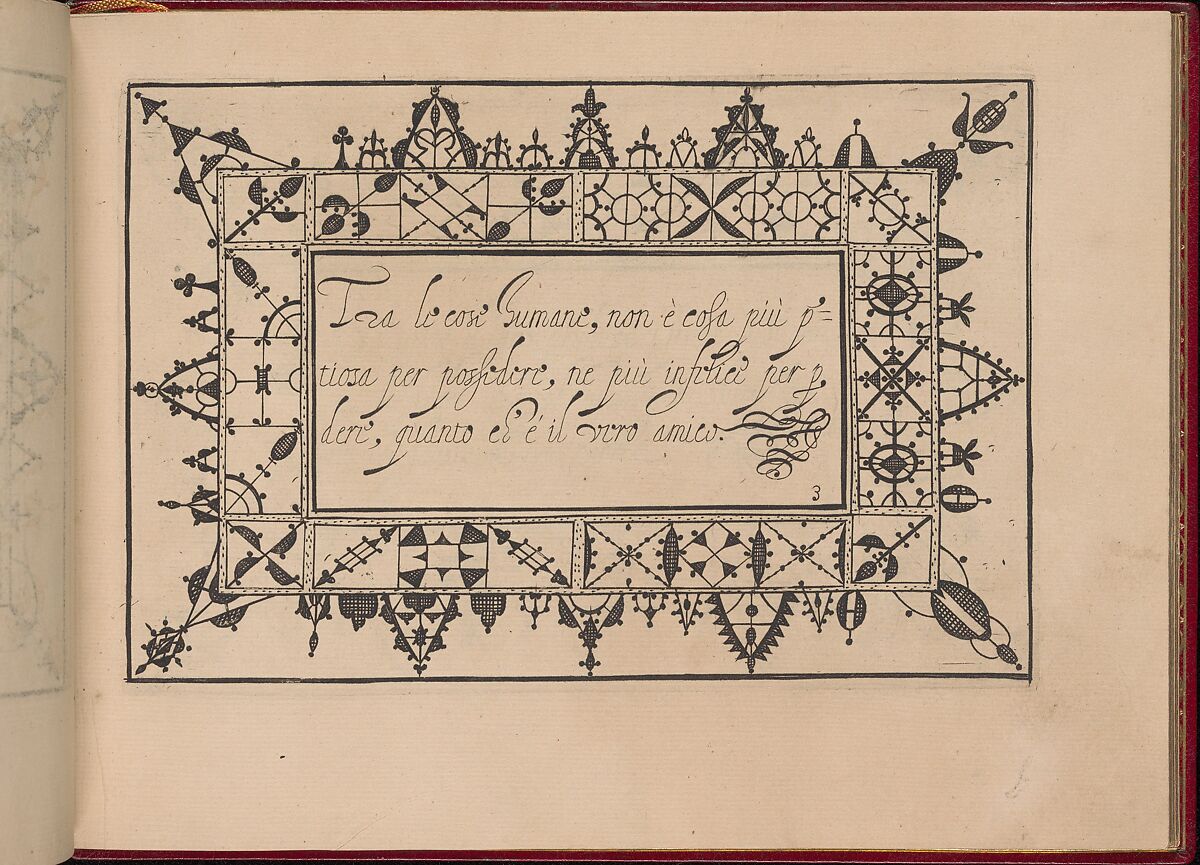 Tra le cose humane, non è cosa più p̲=
tiosa per possedere, ne più infelice per p̲
dere, quanto ch' è il vero amico.
3